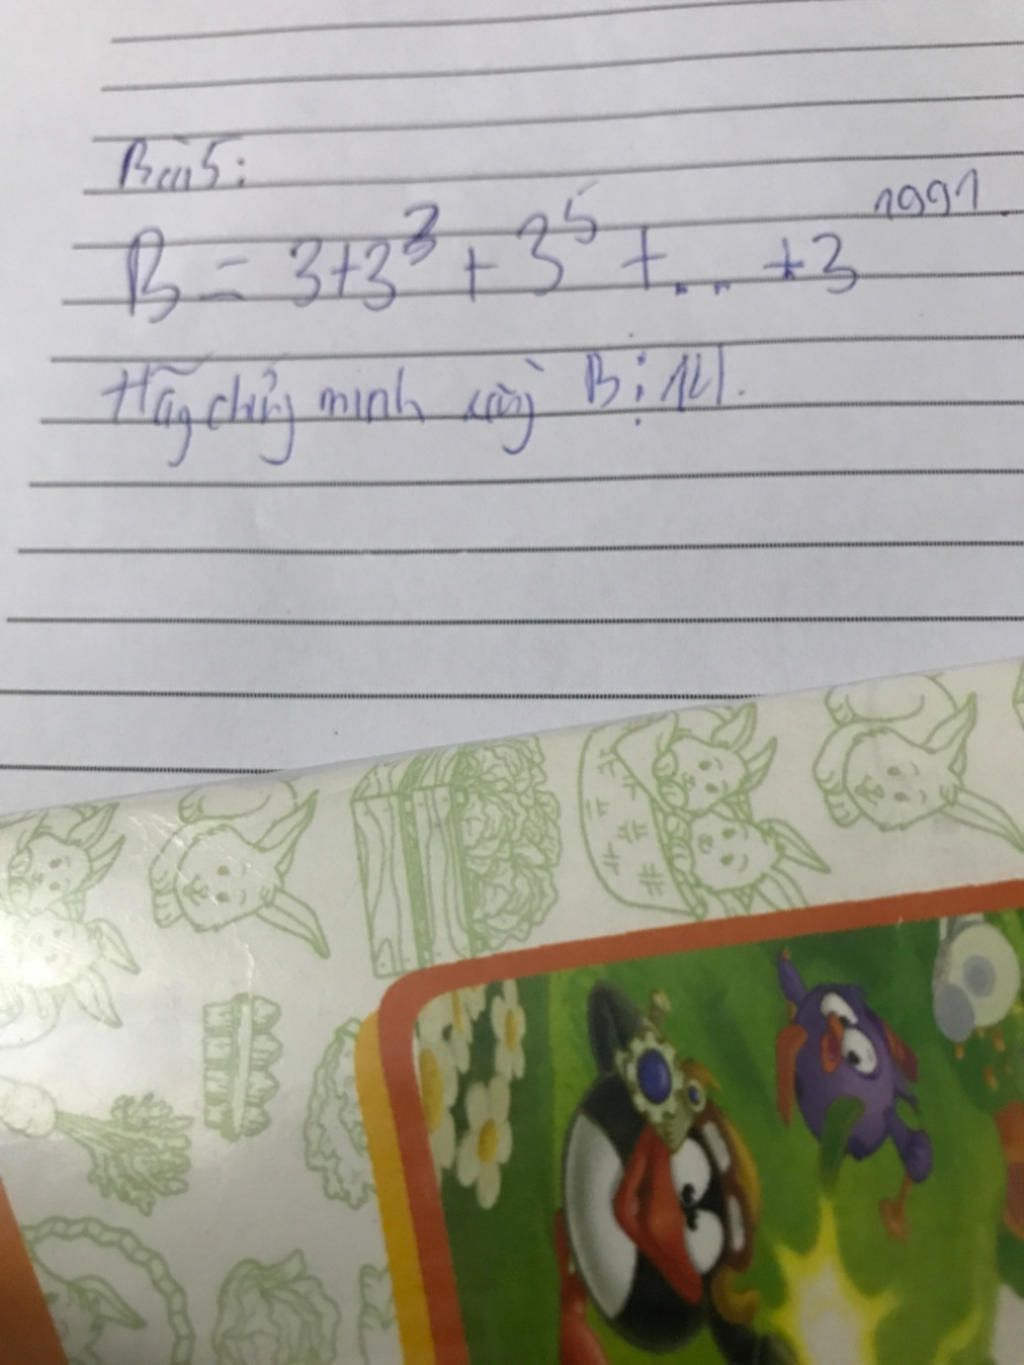 Bài 5:
B = 3+3³ + 3⁵ + ... +3¹⁹⁹¹.
Hãy chứng minh rằng B⋮14.